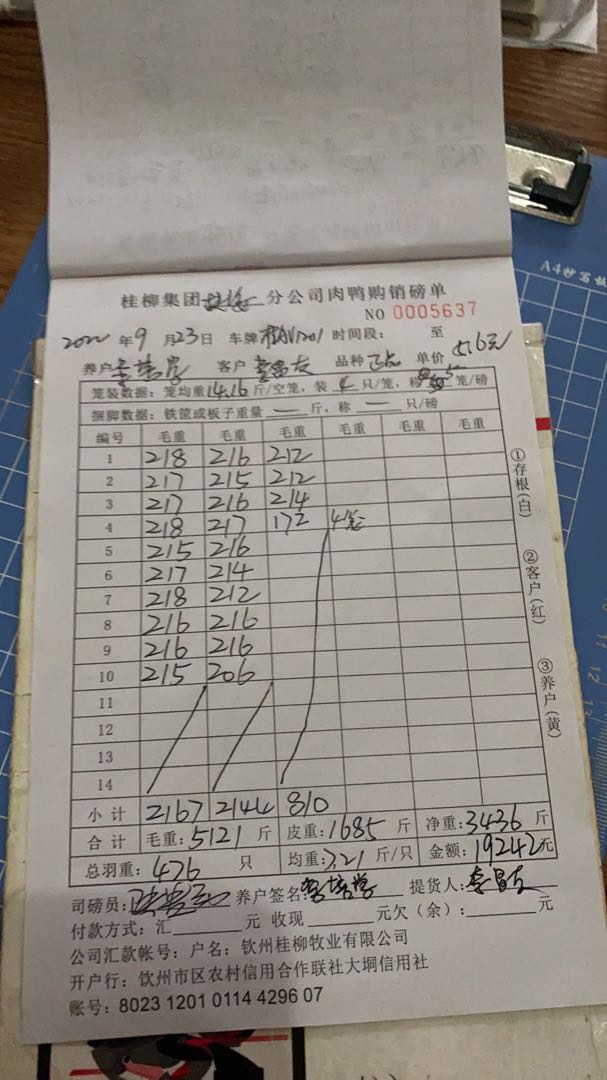 桂柳集团 分公司肉鸭购销磅单
NO 0005637
2022 年 9 月 23 日 车牌 时间段: 至
养户 李培学 客户 李昌友 品种 单价 5.6元
笼装数据: 笼均重 14.16 斤/空笼, 装 4 只/笼, 称 笼/磅
捆脚数据: 铁筐或板子重量 — 斤, 称 — 只/磅
编号 毛重 毛重 毛重 毛重 毛重 毛重
1 218 216 212
2 217 215 212
3 217 216 214
4 218 217 172 4笼
5 215 216
6 217 214
7 218 212
8 216 216
9 216 216
10 215 206
11
12
13
14
小计 2167 2144 810
合计 毛重: 5121 斤 皮重: 1685 斤 净重: 3436 斤
总羽重: 476 只 均重: 7.21 斤/只 金额: 19242元
司磅员: 养户签名: 李培学 提货人: 李昌友
付款方式: 汇 元 收现 元欠(余): 元
公司汇款帐号: 户名: 钦州桂柳牧业有限公司
开户行: 钦州市区农村信用合作联社大垌信用社
账号: 8023 1201 0114 4296 07
①存根(白)
②客户(红)
③养户(黄)